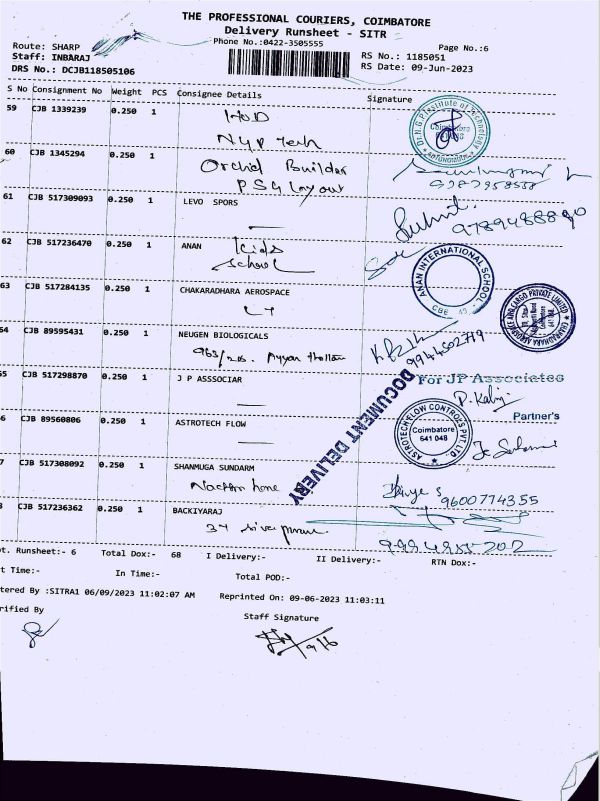 THE PROFESSIONAL COURIERS, COIMBATORE
Delivery Runsheet - SITR
Phone No.:0422-3505555
Page No.:6
Route: SHARP
Staff: INBARAJ
DRS No.: DCJB118505106
RS No.: 1185051
RS Date: 09-Jun-2023
S No Consignment No Weight PCS Consignee Details Signature
59 CJB 1339239 0.250 1 HOD
NGP Tech
Dr.N.G.P.Institute of Technology
Coimbatore
* AUTONOMOUS *
60 CJB 1345294 0.250 1 Orchid Builder
PSG Layout
61 CJB 517309093 0.250 1 LEVO SPORS
62 CJB 517236470 0.250 1 ANAN Kids
School
ANAN INTERNATIONAL SCHOOL
CBE
63 CJB 517284135 0.250 1 CHAKARADHARA AEROSPACE
CHAKRADHARA AEROSPACE AND CARGO PRIVATE LIMITED
Coimbatore
64 CJB 89595431 0.250 1 NEUGEN BIOLOGICALS
9944502779
55 CJB 517298870 0.250 1 J P ASSSOCIAR
For JP Associates
Partner's
6 CJB 89560806 0.250 1 ASTROTECH FLOW
ASTROTECH FLOW CONTROLS PVT. LTD
Coimbatore
641 048
DOCUMENT DELIVERY
7 CJB 517308092 0.250 1 SHANMUGA SUNDARM
home
9600774355
8 CJB 517236362 0.250 1 BACKIYARAJ
34
ot. Runsheet:- 6 Total Dox:- 68 I Delivery:- II Delivery:- RTN Dox:-
t Time:- In Time:- Total POD:-
tered By :SITRA1 06/09/2023 11:02:07 AM Reprinted On: 09-06-2023 11:03:11
rified By Staff Signature
9/6